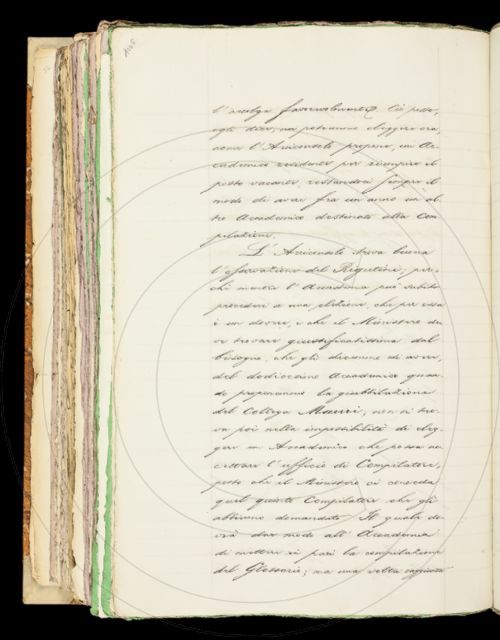 l'accolga favorevolmente. Ciò posto,
egli dice, se potremmo eleggere ora,
come l'Arciconsolo propone, un Ac-
cademico residente per riempire il
posto vacante, resterebbe sempre il
modo di aver fra un anno un al-
tro Accademico destinato alla Com-
pilazione.
L'Arciconsolo trova buona
l'osservazione del Rigutini, per-
chè mentre l'Accademia può subito
procedere a una elezione, che per essa
è un dovere, e che il Ministro de-
ve trovare giustificatissima dal
bisogno, che gli dicemmo di avere,
del dodicesimo Accademico quan-
do proponemmo la giubbilazione
del Collega Mauri; non si tro-
va poi nella impossibilità di eleg-
gere un Accademico che possa ac-
cettare l'ufficio di Compilatore,
posto che il Ministro ci conceda
quel quinto Compilatore che gli
abbiamo domandato. Il quale do-
vrà dar modo all'Accademia
di mettere in pari la compilazione
del Glossario; ma una volta raggiunto